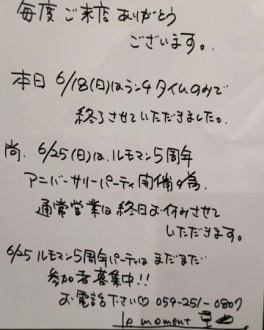 毎度ご来店ありがとう
ございます。
本日 6/18(日)はランチタイムのみで
終了させていただきました。
尚、6/25(日)は、ルモマン5周年
アニバーサリーパーティ開催の為
通常営業は終日お休みさせて
いただきます。
6/25 ルモマン5周年パーティはまだまだ
参加者募集中!!
お電話下さい♡ 059-251-0807
le moment